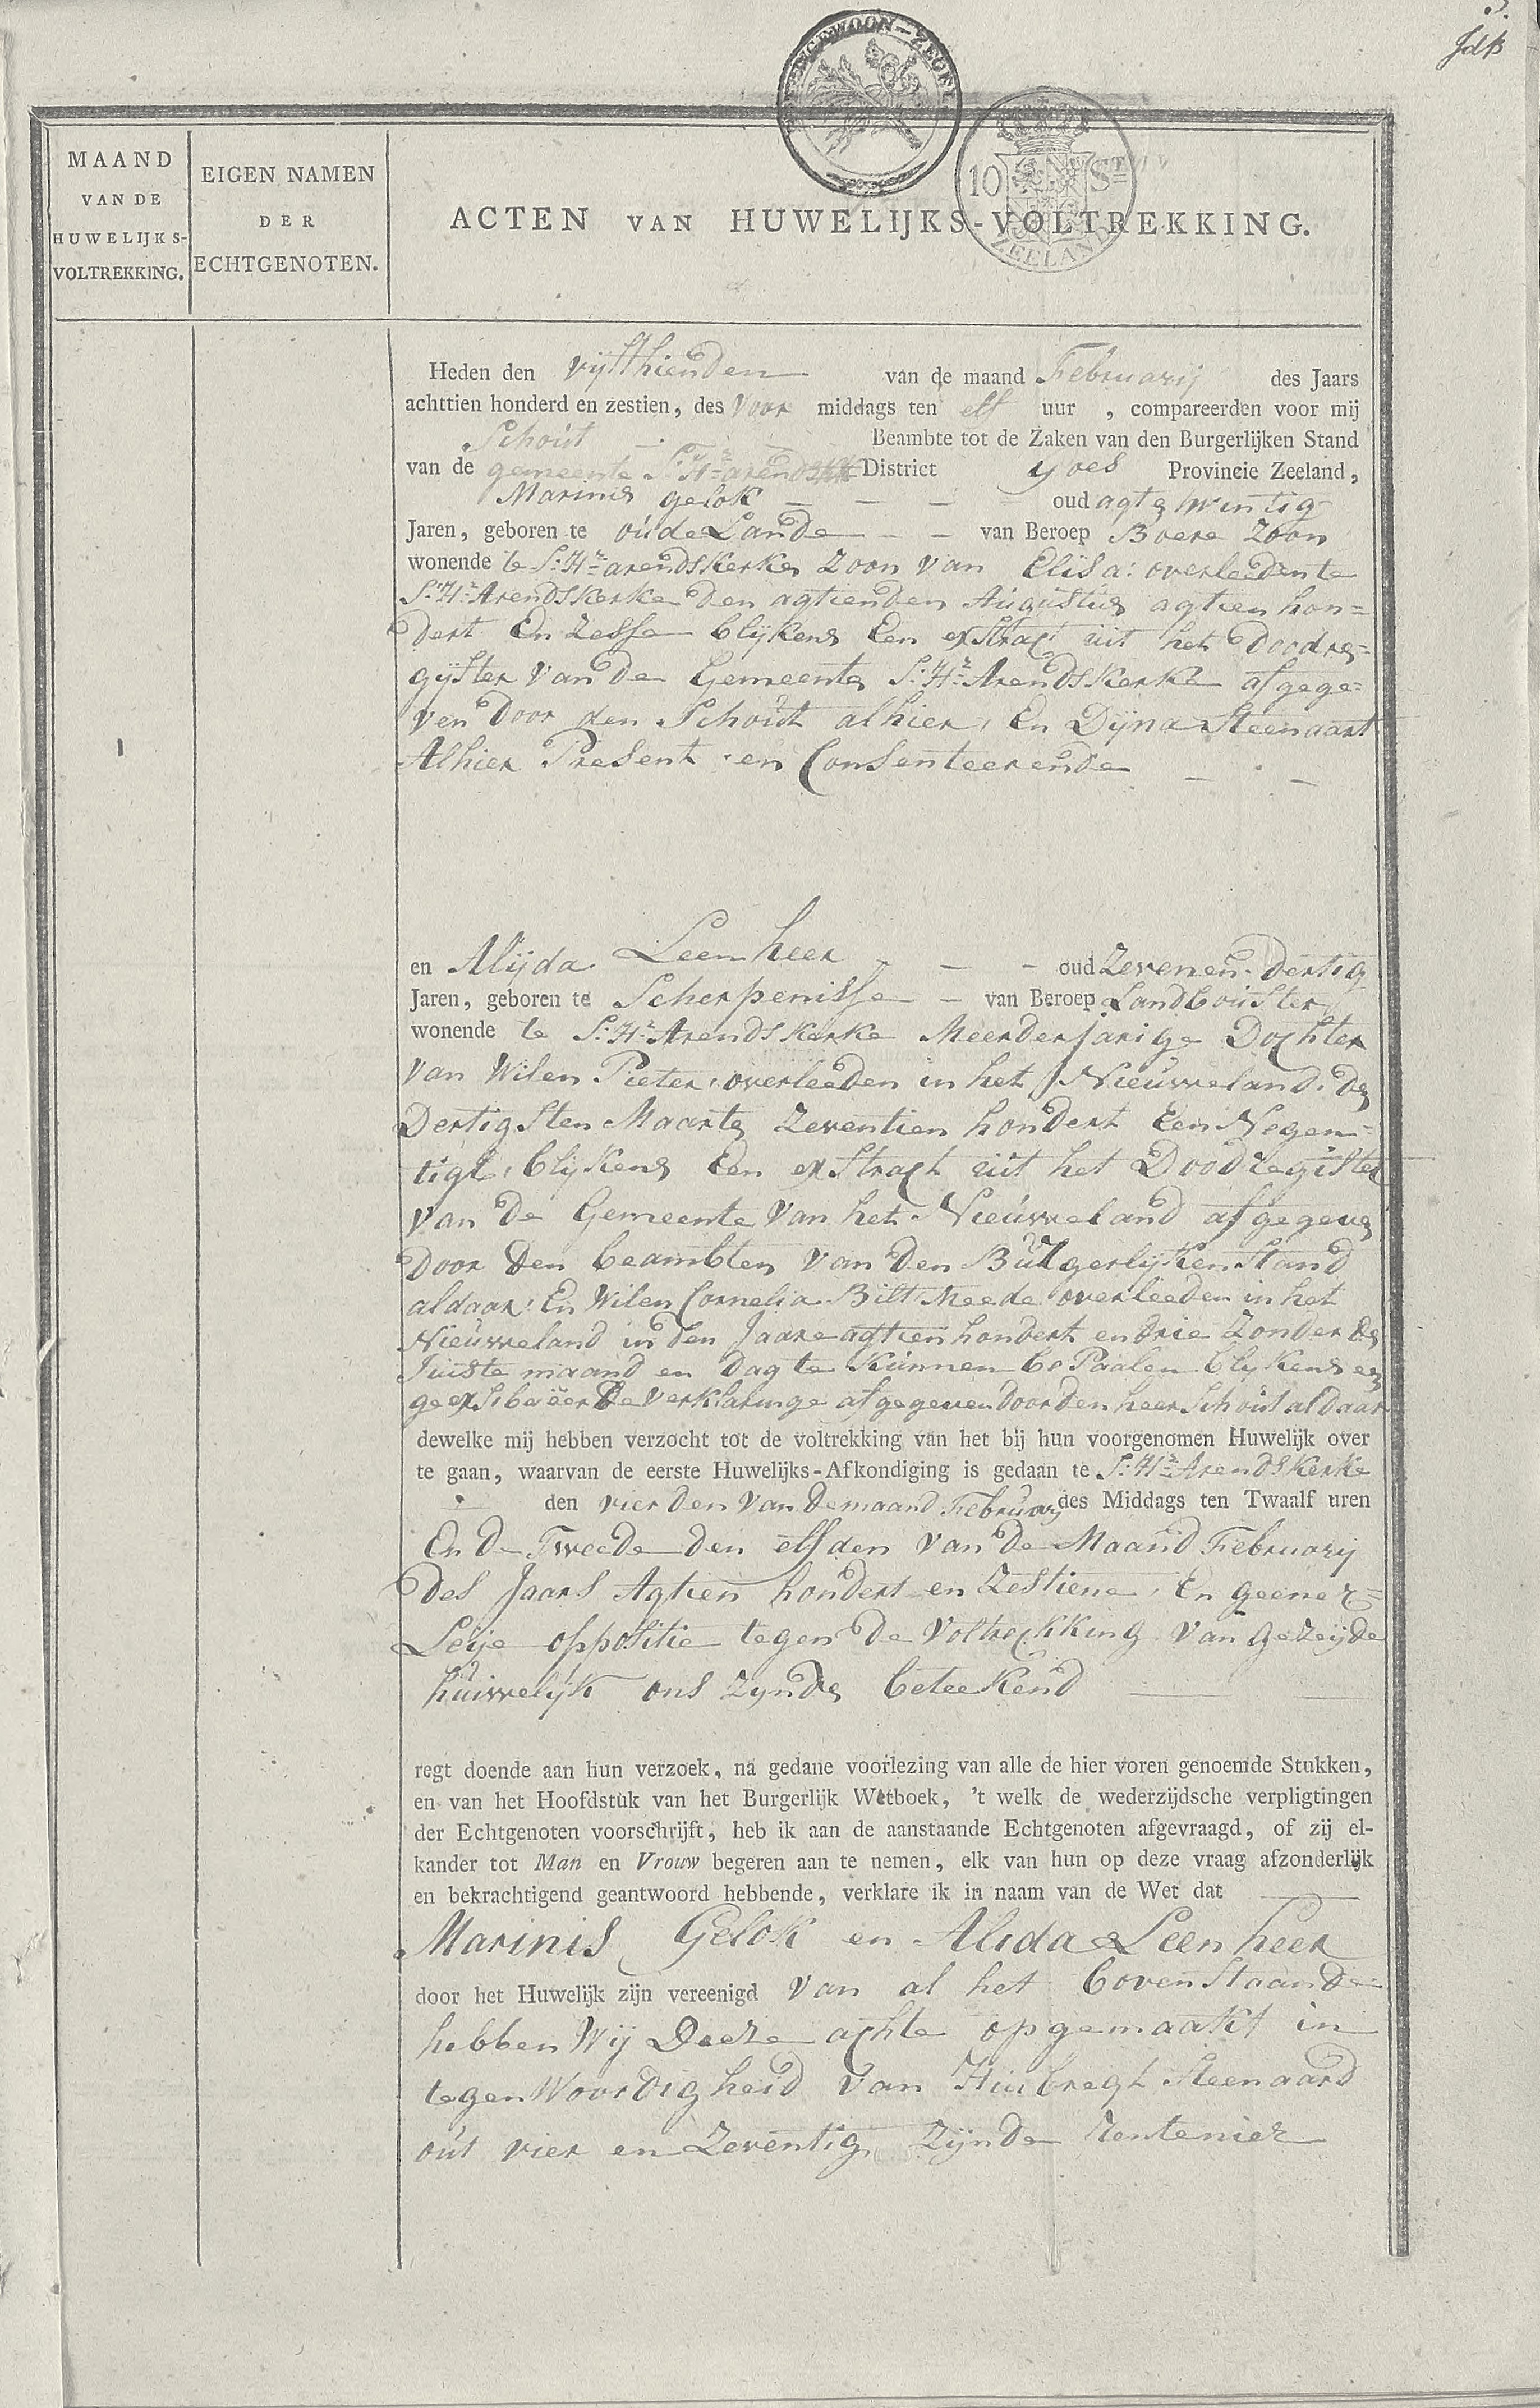 3.
ALGEMEEN GEWOON-ZEGEL
10 ST
ZEELAND
MAAND
VAN DE
HUWELIJKS-
VOLTREKKING.
EIGEN NAMEN
DER
ECHTGENOTEN.
ACTEN VAN HUWELIJKS-VOLTREKKING.
Heden den vijfthienden van de maand Februarij des Jaars
achttien honderd en zestien, des voor middags ten elf uur , compareerden voor mij
Schout Beambte tot de Zaken van den Burgerlijken Stand
van de gemeente S:Hr: arends District goes Provincie Zeeland,
Marinis gelok oud agt & twintig
Jaren, geboren te oude Lande van Beroep Boere Zoon
wonende te S:Hr: arendskerke Zoon van Elisa: overleeden te
S:Hr: Arendskerke den agtienden Augustus agtien hon=
dert En Zesse blijkens Een exstract uit het Doodre=
gijster van de Gemeente S:Hr: Arendskerke afgege=
ven door den Schout alhier, En Dijna Steenaart
Alhier Present en Consenteerende
en Alijda Leenheer oud Zeven en dertig
Jaren, geboren te Scherpenisse van Beroep Landboúster
wonende te S:Hr: Arendskerke Meerderjarige Dochter
van Wilen Pieter, overleeden in het Nieuweland de
Dertigsten Maarte Zeventien hondert Een Negen=
tigt, blijkens Een exstracht uit het Doodregister
van de Gemeente van het Nieuweland afgegeve
Door den beambten van den Burgerlijken Stand
aldaar, En Wilen Cornelia Bilt Meede overleeden in het
Nieuweland in den Jaare agtien hondert en drie Zonder de
Juiste maand en dag te kunnen be Paalen blijkens een
geexsibeëerde verklaringe afgegeven door den heer Schout aldaar
dewelke mij hebben verzocht tot de voltrekking van het bij hun voorgenomen Huwelijk over
te gaan, waarvan de eerste Huwelijks-Afkondiging is gedaan te S:Hr: Arendskerke
den vierden van de maand Februarij des Middags ten Twaalf uren
En de Tweede den elfden van de Maand Februarij
des Jaars Agtien hondert en Zestiene, En geener=
Leije oppositie tegen de Voltrechking van gezeijde
huiwelijk ons zijnde beteekend
regt doende aan hun verzoek, na gedane voorlezing van alle de hier voren genoemde Stukken,
en van het Hoofdstuk van het Burgerlijk Wetboek, 't welk de wederzijdsche verpligtingen
der Echtgenoten voorschrijft, heb ik aan de aanstaande Echtgenoten afgevraagd, of zij el-
kander tot Man en Vrouw begeren aan te nemen, elk van hun op deze vraag afzonderlijk
en bekrachtigend geantwoord hebbende, verklare ik in naam van de Wet dat
Marinis Gelok en Alida Leenheer
door het Huwelijk zijn vereenigd van al het bovenstaande
hebben Wij Deeze achte opgemaakt in
tegenwoordigheid van Huibregt Steenaard
out vier en Zeventig, Zijnde Rentenier